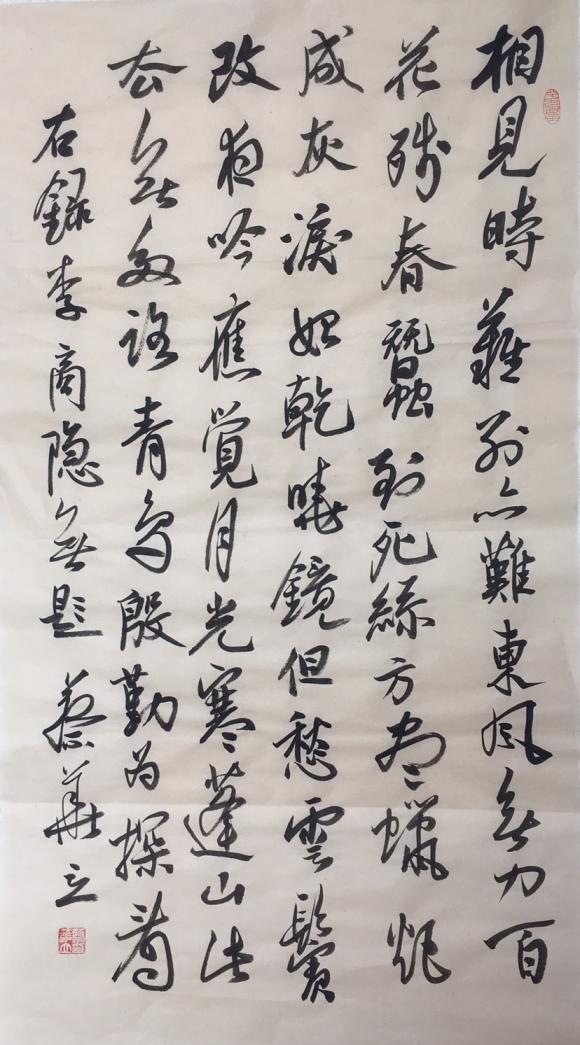 相見時難別亦難東風無力百
花殘春蠶到死絲方盡蠟炬
成灰淚始乾曉鏡但愁雲鬢
改夜吟應覺月光寒蓬山此
去無多路青鳥殷勤為探看
右錄李商隐無題 蔡華立